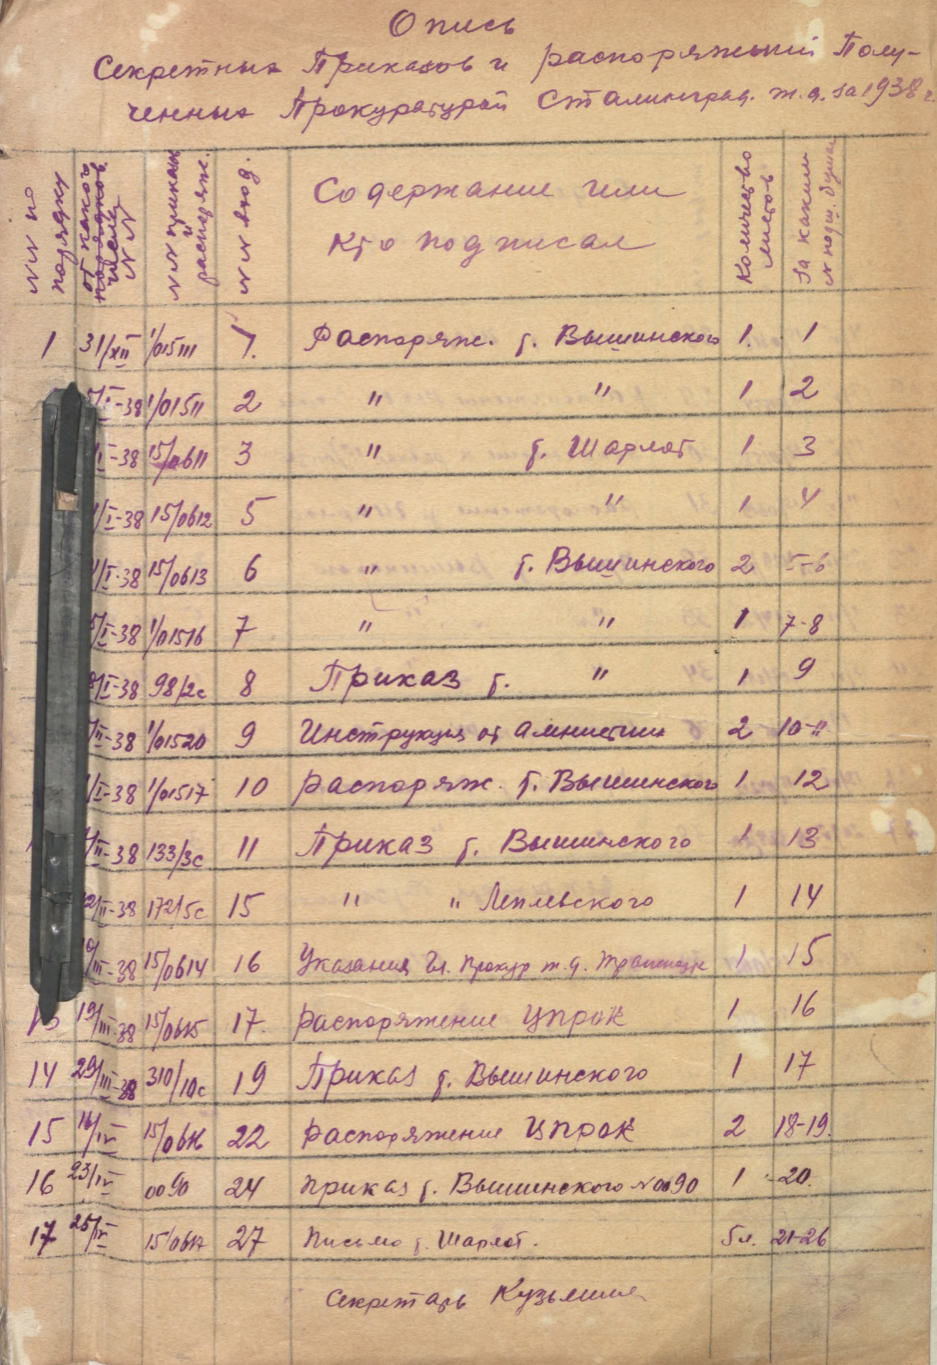 Опись
Секретных Приказов и распоряжений Полу-
ченных Прокуратурой Сталинград. ж.д. за 1938 г.
№№ по порядку | от какого числа №№ | №№ приказ и распоряж. | №№ вход. | Содержание или кто подписал | Количество листов | За каким № подш. бумага
1 31/XII 1/015111 1. Распоряж. т. Вышинского 1. 1
/I-38 1/01511 2 " " 1 2
/I-38 15/0611 3 " т. Шарлот 1 3
/I-38 15/0612 5 " " 1 4
/I-38 15/0613 6 " т. Вышинского 2 5-6
/I-38 1/01516 7 " " 1 7-8
/I-38 98/2с 8 Приказ т. " 1 9
/II-38 1/01520 9 Инструкция от Амнистии 2 10-11
/I-38 1/01517 10 Распоряж. т. Вышинского 1 12
/II-38 133/3с 11 Приказ т. Вышинского 1 13
/II-38 172/5с 15 " " Леплевского 1 14
/III-38 15/0614 16 Указания Гл. Прокур ж.д. 1 15
13 19/III-38 15/0615 17 Распоряжение ЦПрок 1 16
14 29/III-38 310/10с 19 Приказ т. Вышинского 1 17
15 16/IV 15/0616 22 Распоряжение ЦПрок 2 18-19.
16 23/IV 0090 24 Приказ т. Вышинского №0090 1 20.
17 25/IV 15/0617 27 Письмо т. Шарлот. 5л. 21-26
Секретарь Кузьмина